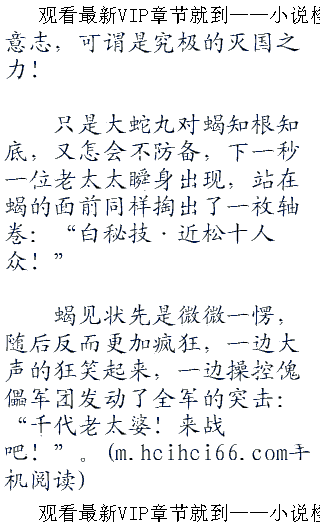 观看最新VIP章节就到——小说
意志，可谓是究极的灭国之
力！
只是大蛇丸对蝎知根知
底，又怎会不防备，下一秒
一位老太太瞬身出现，站在
蝎的面前同样掏出了一枚轴
卷：“白秘技·近松十人
众！”
蝎见状先是微微一愣，
随后反而更加疯狂，一边大
声的狂笑起来，一边操控傀
儡军团发动了全军的突击：
“千代老太婆！来战
吧！”。(m.hcihci66.com手
机阅读)
观看最新VIP章节就到——小说